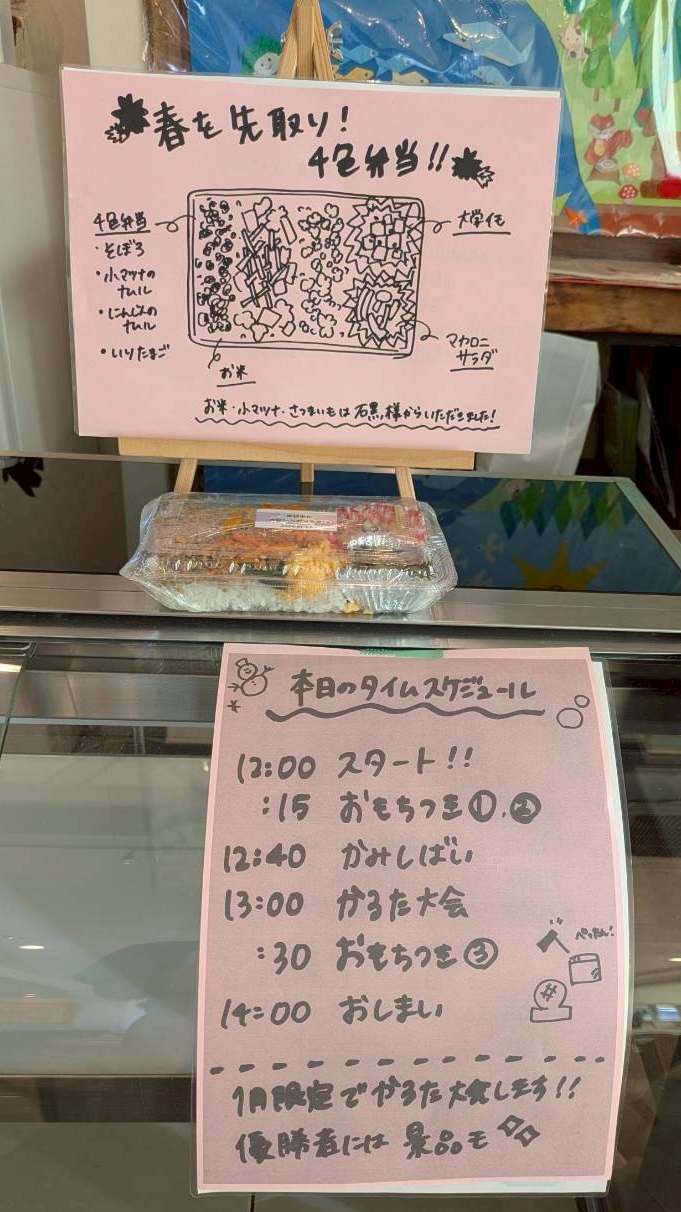 春を先取り!
4色弁当!!
4色弁当
・そぼろ
・小マツナの
ナムル
・にんじんの
ナムル
・いりたまご
お米
大学イモ
マカロニ
サラダ
お米・小マツナ・さつまいもは石黒様からいただきました!
本日のタイムスケジュール
12:00 スタート!!
:15 おもちつき①.②
12:40 かみしばい
13:00 かるた大会
:30 おもちつき③
14:00 おしまい
ぺったん!
1月限定でかるた大会します!!
優勝者には景品も